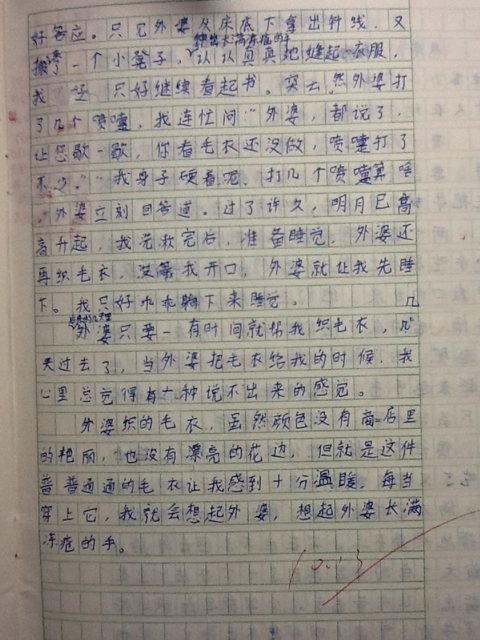 好答应。只见外婆从床底下拿出针线，又
搬了一个小凳子，伸出长满冻疮的手认认真真地缝起衣服，
我只好继续看起书。突然外婆打
了几个喷嚏，我连忙问“外婆，都说了，
让您歇一歇，你看毛衣还没做，喷嚏打了
不少。”“我身子硬着呢，打几个喷嚏算啥
。”外婆立刻回答道。过了许久，明月已高
高升起，我洗漱完后，准备睡觉，外婆还
再织毛衣，没等我开口，外婆就让我先睡
下。我只好乖乖躺下来睡觉。
外婆只要一有时间就帮我织毛衣，几
天过去了，当外婆把毛衣给我的时候，我
心里总觉得有一种说不出来的感觉。
外婆织的毛衣，虽然颜色没有商店里
的艳丽，也没有漂亮的花边，但就是这件
普普通通的毛衣让我感到十分温暖。每当
穿上它，我就会想起外婆，想起外婆长满
冻疮的手。
10.13